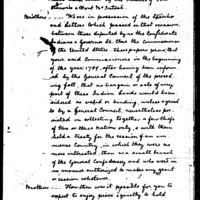 Brothers ... We're in possession of the Speeches
and Letters which passed on that occasion,
between those deputed by the Confederate
Indians & Governor St. that the Commissioner
the United States. These papers prove, that
your said Commissioners in the beginning of
the year 1789, after having been inform
ed by the General Council of the preced
ing fall, that no bargain or sale of any
part of these Indian lands would be con
sidered as valid or binding, unless agreed
to by a General Council, nevertheless per
sisted in collecting together, a few Chiefs
of two or three nations only, & with them
held a Treaty for the cession of an im
mense Country, in which they were no
more interested, than as a small branch
of the General Confederacy and who were in
no manner authorized to make any grant
or cession whatever.
Brothers ... How then was it possible for you to
expect to enjoy peace & quietly to hold